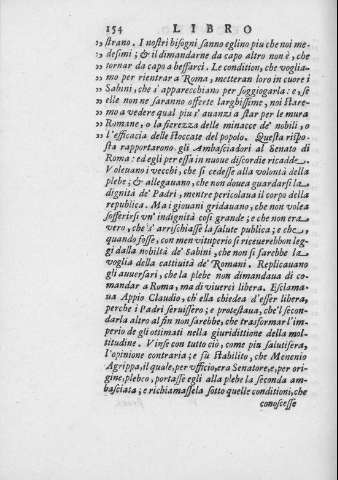 154 LIBRO
” strano. I nostri bisogni sanno eglino piu che noi me-
” desimi; & il dimandarne da capo altro non è, che
” tornar da capo a beffarci. Le condition, che voglia-
” mo per rientrar a Roma, metteran loro in cuore i
” Sabini, che s'apparecchiano per soggiogarla: e, se
” elle non ne saranno offerte larghissime, noi stare-
” mo a vedere qual piu s'auanzi a star per le mura
” Romane, o la fierezza delle minacce de' nobili, o
” l'efficacia delle stoccate del popolo. Questa rispo-
sta rapportarono gli Ambasciadori al Senato di
Roma: ed egli per essa in nuoue discordie ricadde.
Voleuano i vecchi, che si cedesse alla volontà della
plebe; & allegauano, che non douea guardarsi la
dignità de' Padri, mentre pericolaua il corpo della
republica. Ma i giouani gridauano, che non volea
sofferirsi vn' indignità così grande; e che non era
vero, che s' arrischiasse la salute publica; e che
quando fosse, con men vituperio si riceuerebbon leg-
gi dalla nobiltà de' Sabini, che non si farebbe la
voglia della cattiuità de' Romani. Replicauano
gli auuersari, che la plebe non dimandaua di co-
mandar a Roma, ma di viuerci libera. Esclama-
ua Appio Claudio, ch' ella chiedea d'esser libera,
perche i Padri seruissero; e protestaua, che'l secon-
darla altro al fin non sarebbe, che trasformar l'im-
perio de gli ottimati nella giuridittione della mol-
titudine. Vinse con tutto ciò, come piu salutifera,
l'opinione contraria; e fù stabilito, che Menenio
Agrippa, il quale, per vfficio, era Senatore, e, per ori-
gine, plebeo, portasse egli alla plebe la seconda am-
basciata; e richiamassela sotto quelle conditioni, che
conoscesse